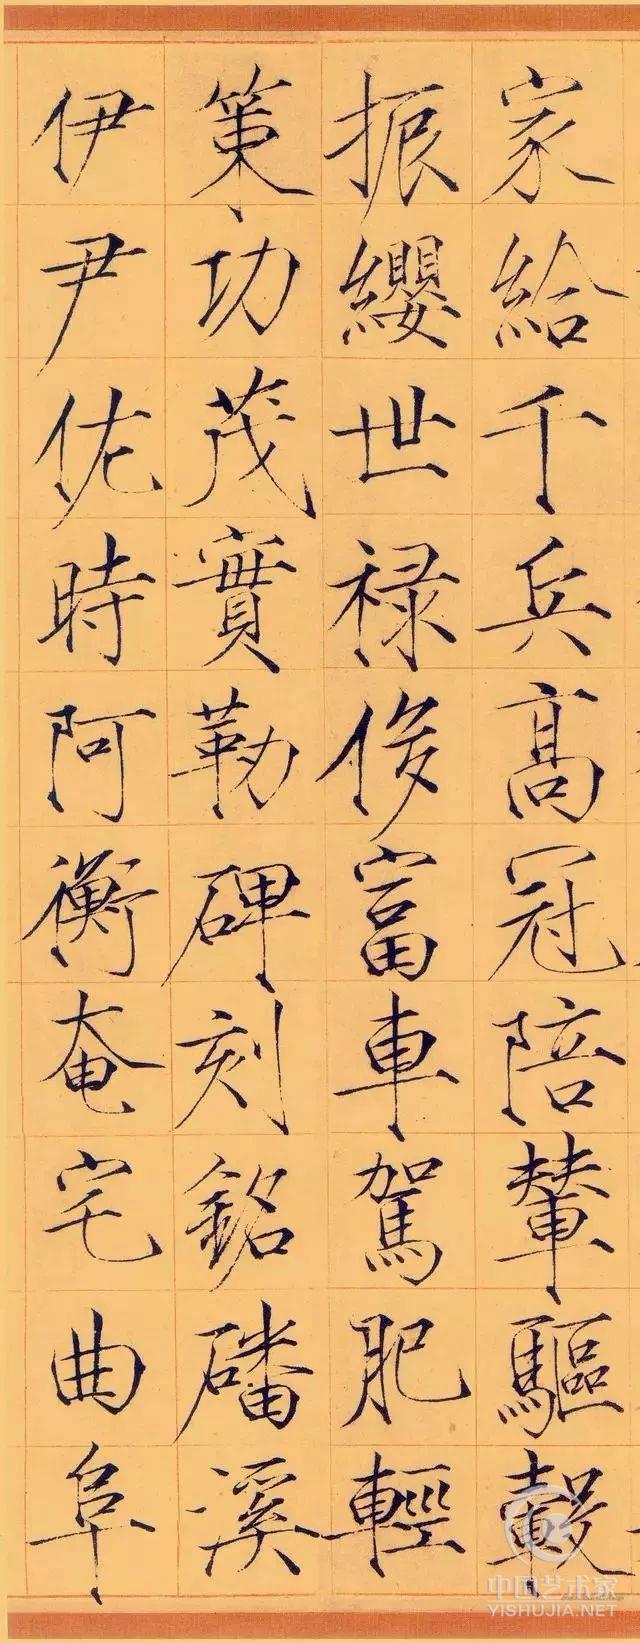 家給千兵高冠陪輦驅轂
振纓世禄侈富車駕肥輕
策功茂實勒碑刻銘磻溪
伊尹佐時阿衡奄宅曲阜
中国艺术家
YISHUJIA.NET